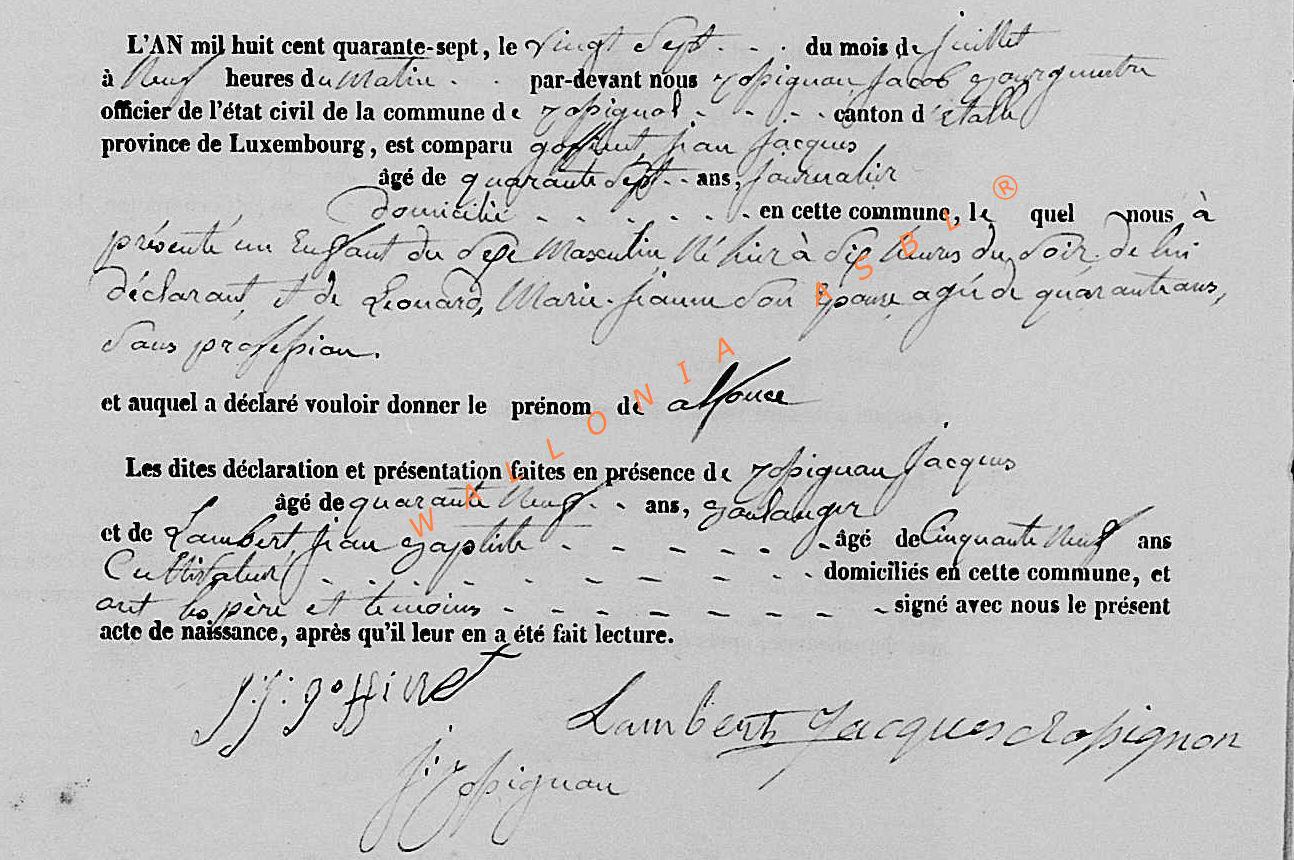 L'AN mil huit cent quarante-sept, le vingt sept - - . du mois de juillet
à Neuf heures du Matin - - par-devant nous Rossignon Jacob Bourgmestre
officier de l'état civil de la commune de Rossignol - - - - canton d'Etalle
province de Luxembourg, est comparu goffinet jean jacques
âgé de quarante sept - - ans, journalier
Domicilié - - - - - - - en cette commune, le quel nous à
présenté un Enfant du Sexe Masculin Né hier à Dix heures du Soir. de lui
déclarant, et de Léonard, Marie-jeanne Son Epouse agée de quarante ans,
Sans profession.
et auquel a déclaré vouloir donner le prénom de alfonce
Les dites déclaration et présentation faites en présence de Rossignon Jacques
âgé de quarante Neuf - - ans, Boulanger
et de Lambert, jean Baptiste - - - - - - - âgé de Cinquante Neuf ans
Cultivateur - - - - - - - - - - - domiciliés en cette commune, et
ont les père et temoins - - - - - - - - - signé avec nous le présent
acte de naissance, après qu'il leur en a été fait lecture.
J:J: goffinet
Lambert Jacques Rossignon
J: Rossignon
WALLONIA ASBL ®